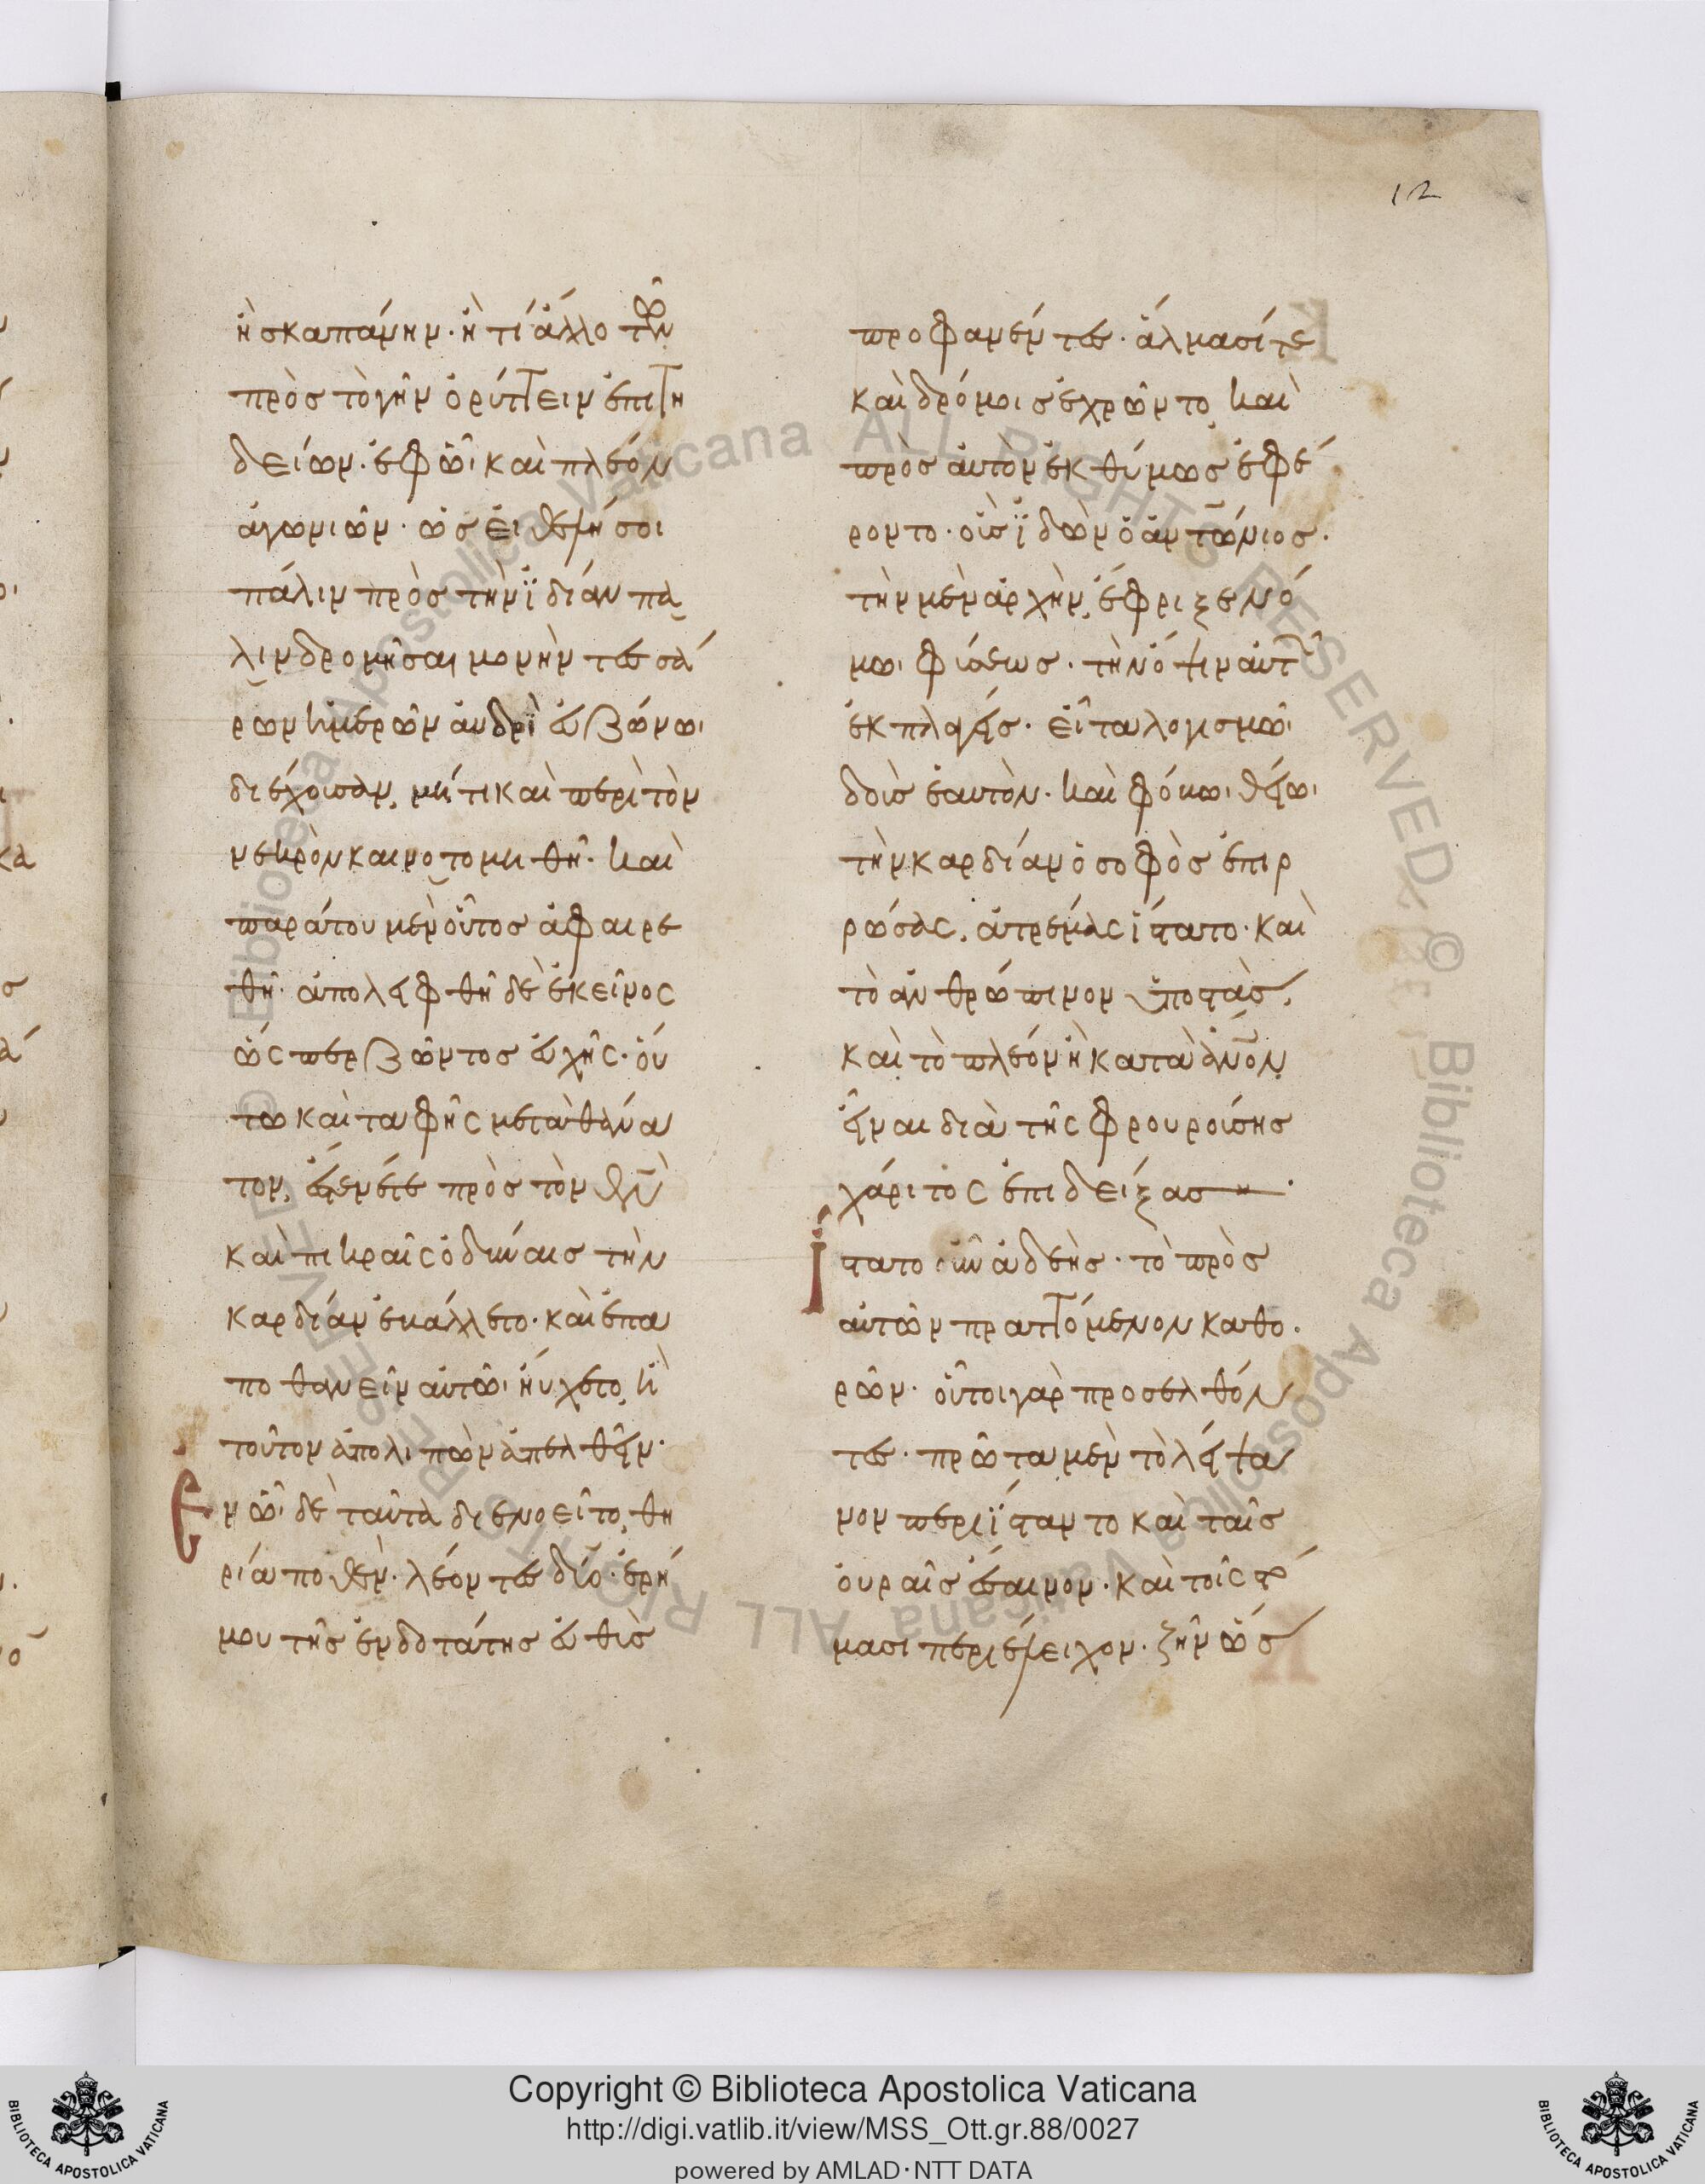 12
ἢ σκαπάνην· ἢ τί ἄλλο τῶν
πρὸς τὸ γῆν ὀρύττειν ἐπιτη
δείων· ἐφ ὧι καὶ πλέον
ἀγωνιῶν· ὡς εἰ θεμή σοι
πάλιν πρὸς τὴν ϊδίαν πα
λινδρομῆσαι μονὴν τεσσά
ρων ἡμερῶν ἀνδρὶ εὐζώνωι
διεχούσαν, μή τι καὶ περὶ τὸν
νεκρὸν καινοτομηθῆ· καὶ
παρατου μὲν οὗτος ἀφαιρε
θῆ· ἀπολειφθῆ δὲ ἐκεῖνος
ὥσπερ ζῶντος εὐχῆς· οὕ
τω καὶ ταφῆς μετὰ θάνα
τον, ἐτενέτε πρὸς τὸν θν
καὶ πικραῖς ὀδύναις τὴν
καρδίαν ἐβάλλετο· καὶ ἐπα
ποθανεῖν αὐτῶι ηὔχετο, ἢ
τοῦτον ἀπολιπὼν ἀπελθεῖν·
Ἐν ὧι δὲ ταῦτα διενοεῖτο, θη
ρία ποθὲν· λέοντες δύο· ἐρή
μου τῆς ἐνδοτάτης εὐθὺς
προφανέντες· ἅλμασί τε
καὶ δρόμοις ἐχρῶντο, καὶ
πρὸς αὐτὸν ἐκθύμως ἐφέ
ροντο· οὓς ϊδὼν ὁ ἀντώνιος·
τὴν μὲν ἀρχὴν, ἔφριξε νό
μωι φύσεως· τὴν ὄψιν αὐτ
ἐκπλαγείς· εἶτα λογισμῶι
δοὺς ἑαυτὸν· καὶ φόβωι θείωι
τὴν καρδίαν ὁ σοφὸς ἐπιρ
ρώσας, ἀτρεμὰς ἵστατο· καὶ
τὸ ἀνθρώπινον ὑποστὰς,
καὶ τὸ πλέον ἢ κατὰ ἀνον
εἶναι διὰ τῆς φρουρούσης
χάριτος ἐπιδείξας·
Ἵστατο οὖν ἀδεὴς· τὸ πρὸς
αὐτῶν πραττόμενον καθο·
ρῶν· οὗτοι γὰρ προσελθόν
τες· πρῶτα μὲν τὸ λείψα
νον περιΐσταντο καὶ ταῖς
οὐραῖς ἔσαινον· καὶ τοῖς στό
μασι περιέλειχον· ζῆν ὡς
Copyright © Biblioteca Apostolica Vaticana
http://digi.vatlib.it/view/MSS_Ott.gr.88/0027
powered by AMLAD·NTT DATA
BIBLIOTECA APOSTOLICA VATICANA
BIBLIOTECA APOSTOLICA VATICANA
© Biblioteca Apostolica Vaticana ALL RIGHTS RESERVED © Biblioteca Apostolica Vaticana ALL RIGHTS RESERVED